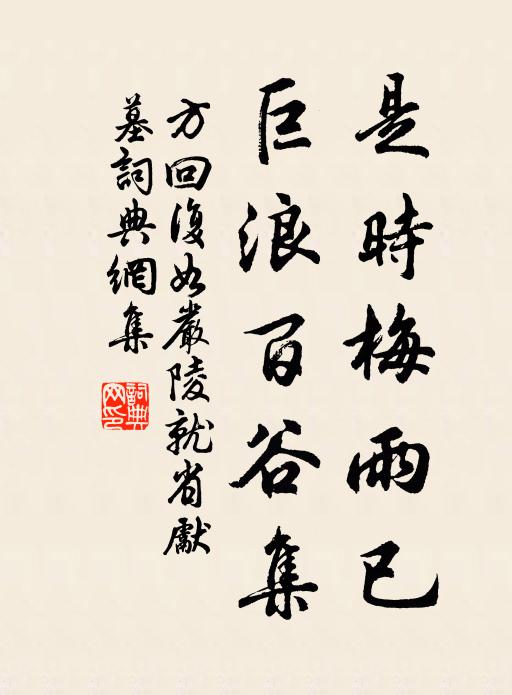 是時梅雨已
巨浪百谷集
方回復如嚴陵就省獻
墓詞典網集
詞典網印